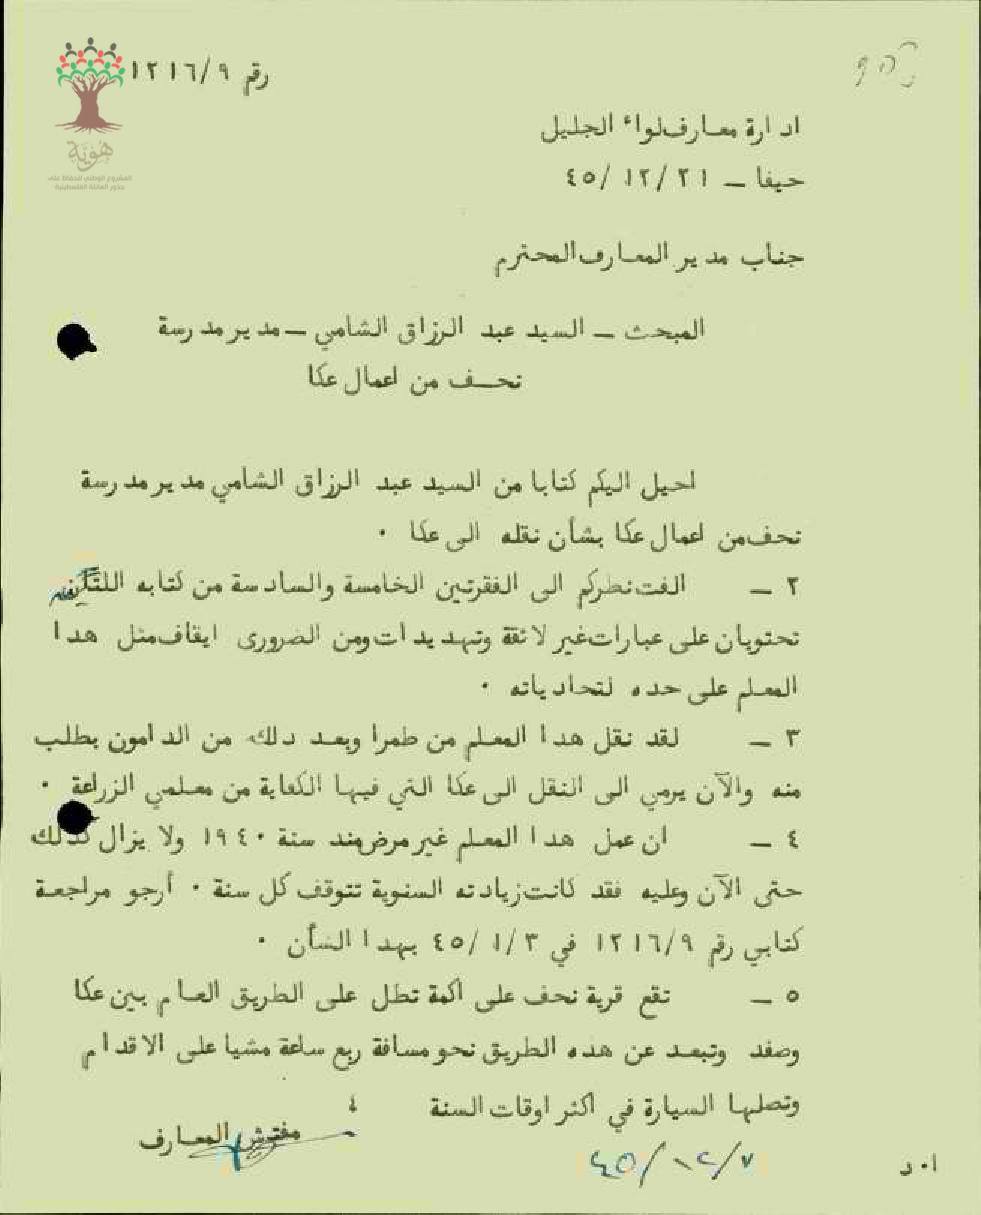 رقم ١٢١٦/٩
هُوِيَّة
المشروع الوطني للحفاظ على
جذور العائلة الفلسطينية
ادارة معارف لواء الجليل
حيفا ــ ٤٥/١٢/٢١
جناب مدير المعارف المحترم
المبحث ــ السيد عبد الرزاق الشامي ــ مدير مدرسة
نحف من اعمال عكا
احيل اليكم كتابا من السيد عبد الرزاق الشامي مدير مدرسة
نحف من اعمال عكا بشأن نقله الى عكا ٠
٢ ــ الفت نظركم الى الفقرتين الخامسة والسادسة من كتابه اللتين
تحتويان على عبارات غير لائقة وتهديدات ومن الضرورى ايقاف مثل هدا
المعلم على حده لتحادياته ٠
٣ ــ لقد نقل هدا المعلم من طمرا وبعد دلك من الدامون بطلب
منه والآن يرمي الى النقل الى عكا التي فيها الكفاية من معلمي الزراعة ٠
٤ ــ ان عمل هدا المعلم غير مرض مند سنة ١٩٤٠ ولا يزال كدلك
حتى الآن وعليه فقد كانت زيادته السنوية تتوقف كل سنة ٠ أرجو مراجعة
كتابي رقم ١٢١٦/٩ في ٤٥/١/٣ بهدا الشأن ٠
٥ ــ تقع قرية نحف على اكمة تطل على الطريق العام بين عكا
وصفد وتبعد عن هده الطريق نحو مسافة ربع ساعة مشيا على الاقدام
وتصلها السيارة في اكثر اوقات السنة
مفتش المعارف
ا٠د